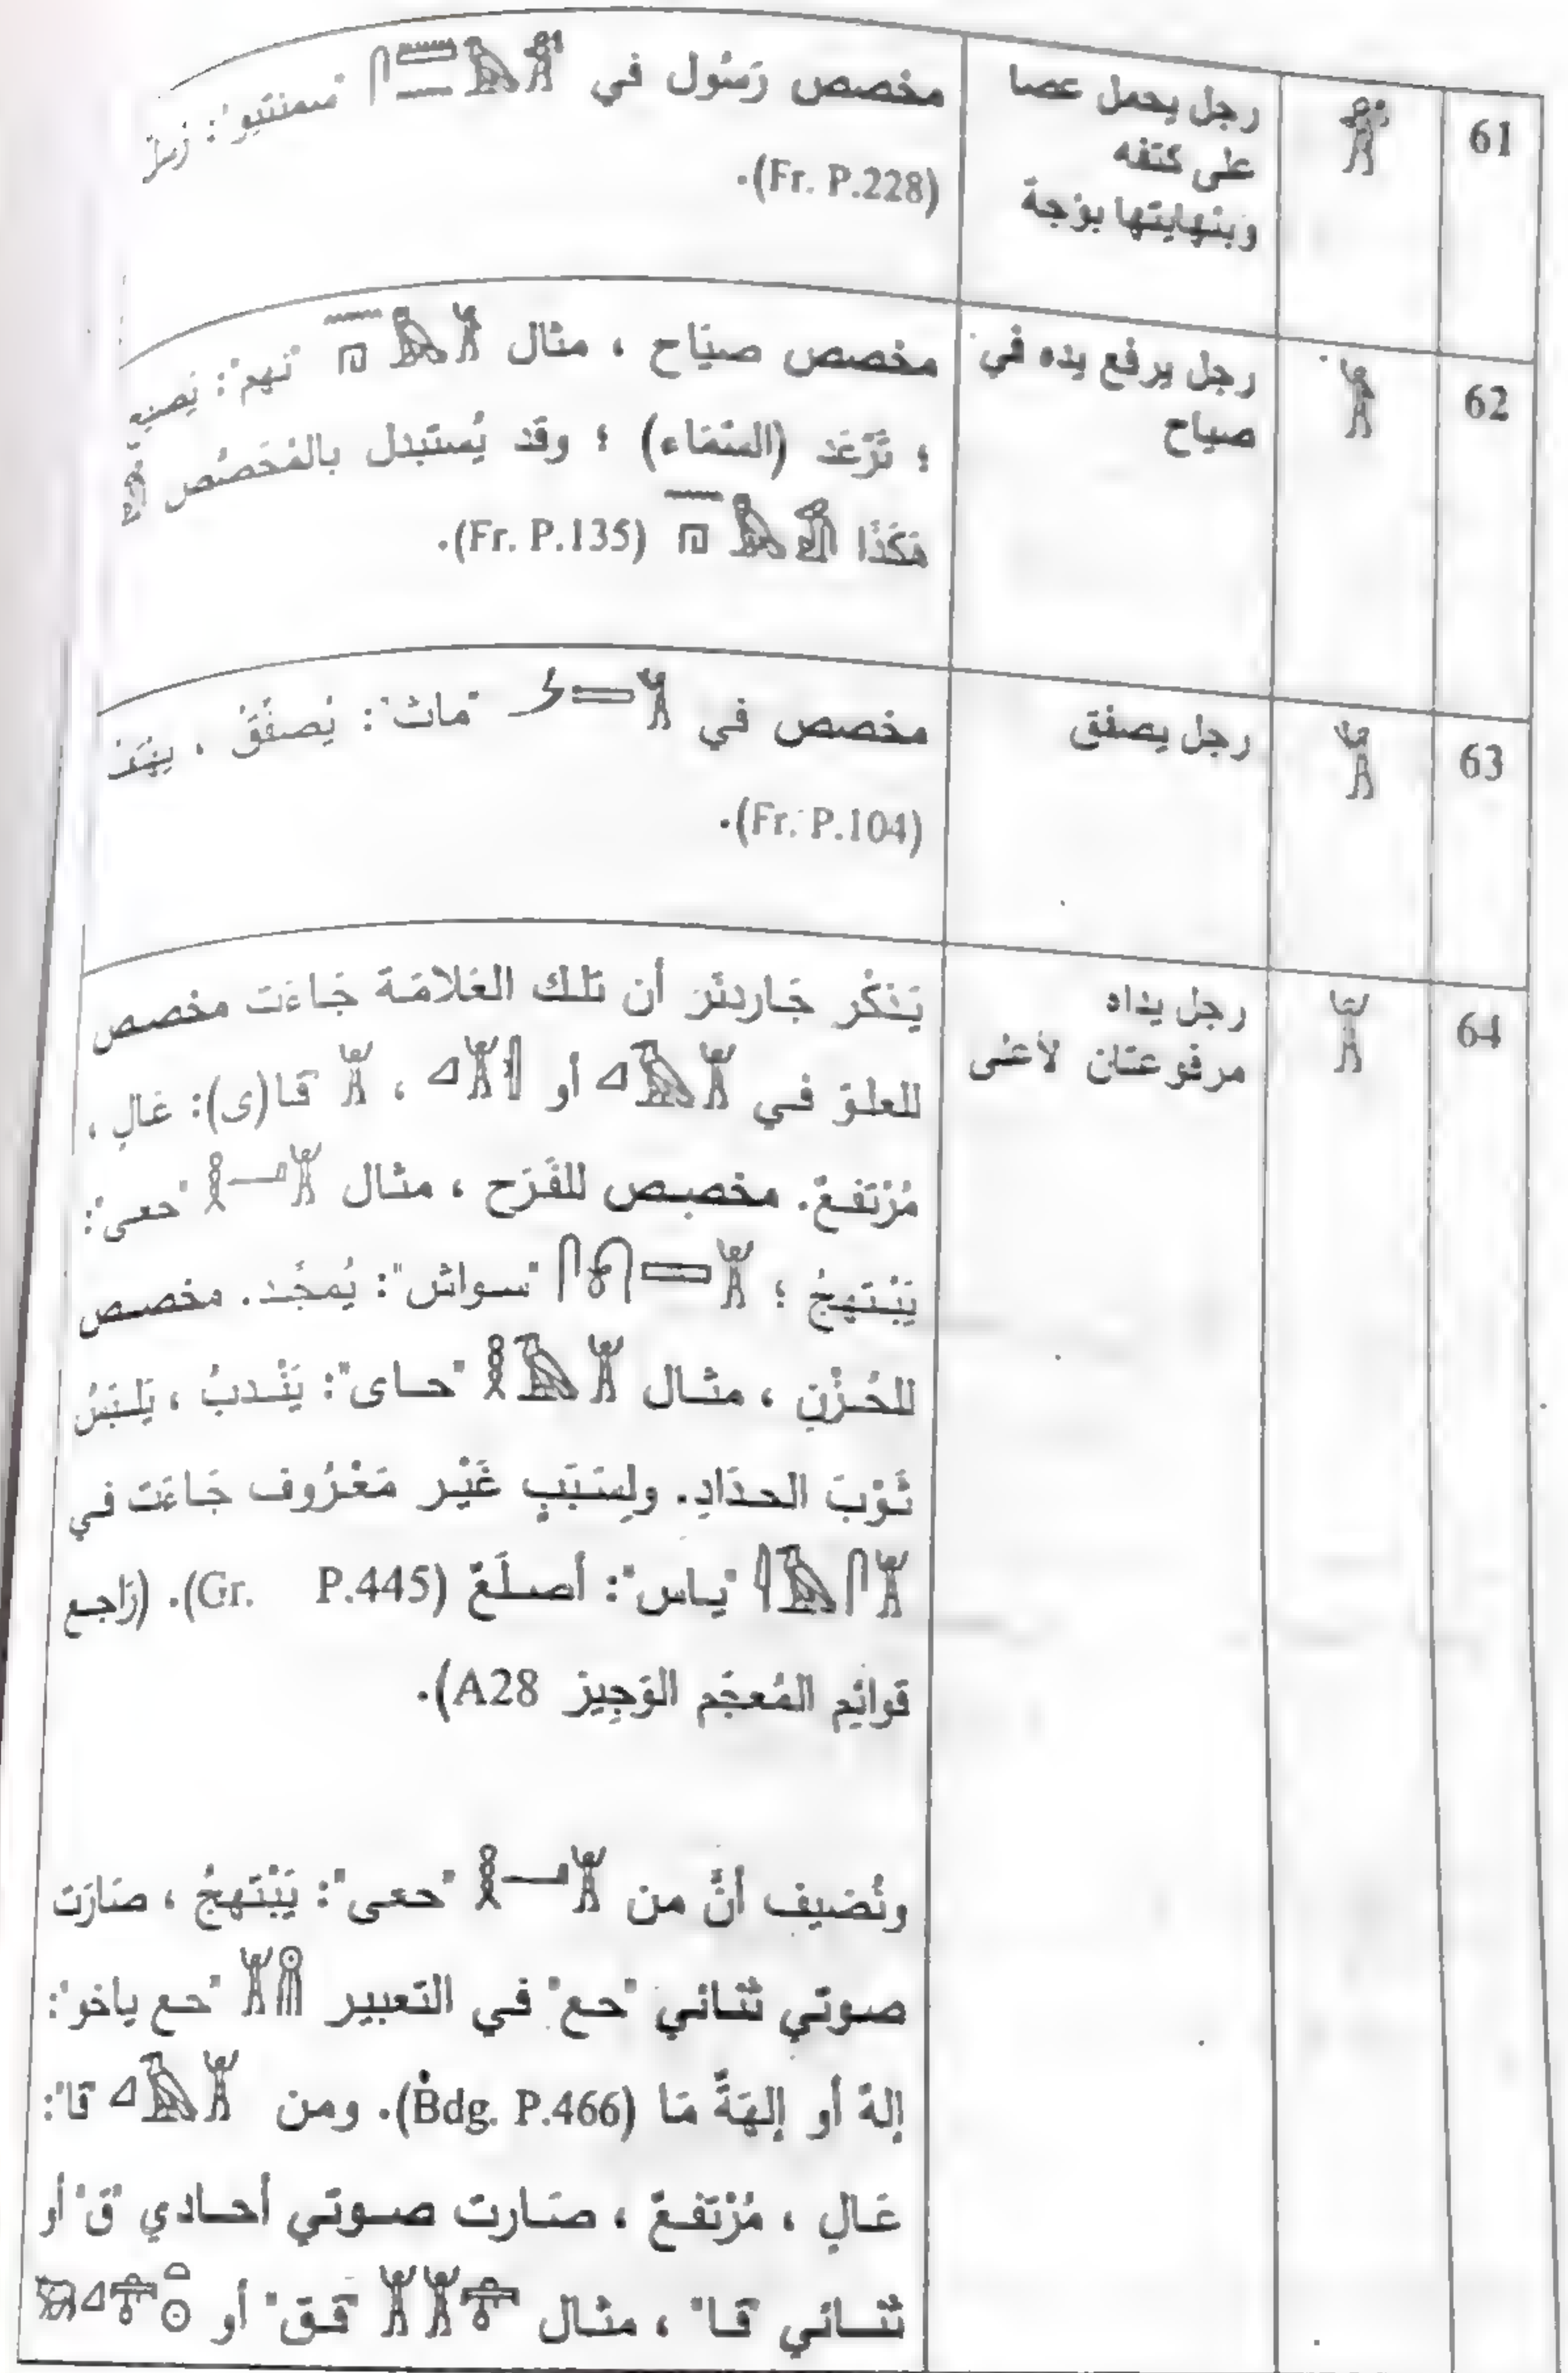 61
رجل يحمل عصا
على كتفه
وبنهايتها بؤجة
مخصص رَسُول في "سمنتيو": رُسل
(Fr. P.228).
62
رجل يرفع يده في
صياح
مخصص صيَاح ، مثال "نهم": يَصيح
؛ تَرْعَد (السَمَاء) ؛ وقد يُستبدل بالمُخَصَص
هَكَذَا (Fr. P.135).
63
رجل يصفق
مخصص في "ماث": يُصفَقُ ، يهتف
(Fr. P.104).
64
رجل يداه
مرفوعتان لأعلى
يَذكُر جَاردنَر أن تلك العَلامَة جَاءَت مخصص
للعلوَ في أو ، قا(ى): عَالِ ،
مُرْتَفعٌ. مخصص للفَرَح ، مثال "حعى":
يَبْتهِجُ ؛ "سواش": يُمجَد. مخصص
للحُزْنِ ، مثال "حاى": يَنْدبُ ، يَلبَسُ
ثَوْبَ الحدَادِ. ولِسَبَبِ غَيْر مَعْرُوف جَاءَت في
"ياس": أصلَعٌ (Gr. P.445). (رَاجع
قوائِم المُعجَم الوَجِيز A28).
ونُضيف أنَّ من "حعى": يَبْتهجُ ، صَارَت
صوتي ثنائي "حع" في التعبير "حع ياخو":
إلهٌ أو إلهَةٌ مَا (Bdg. P.466). ومن "قا":
عَالِ ، مُرْتَفعٌ ، صَارت صوتي أحادي "ق" أو
ثنائي "قا" ، مثال "قق" أو